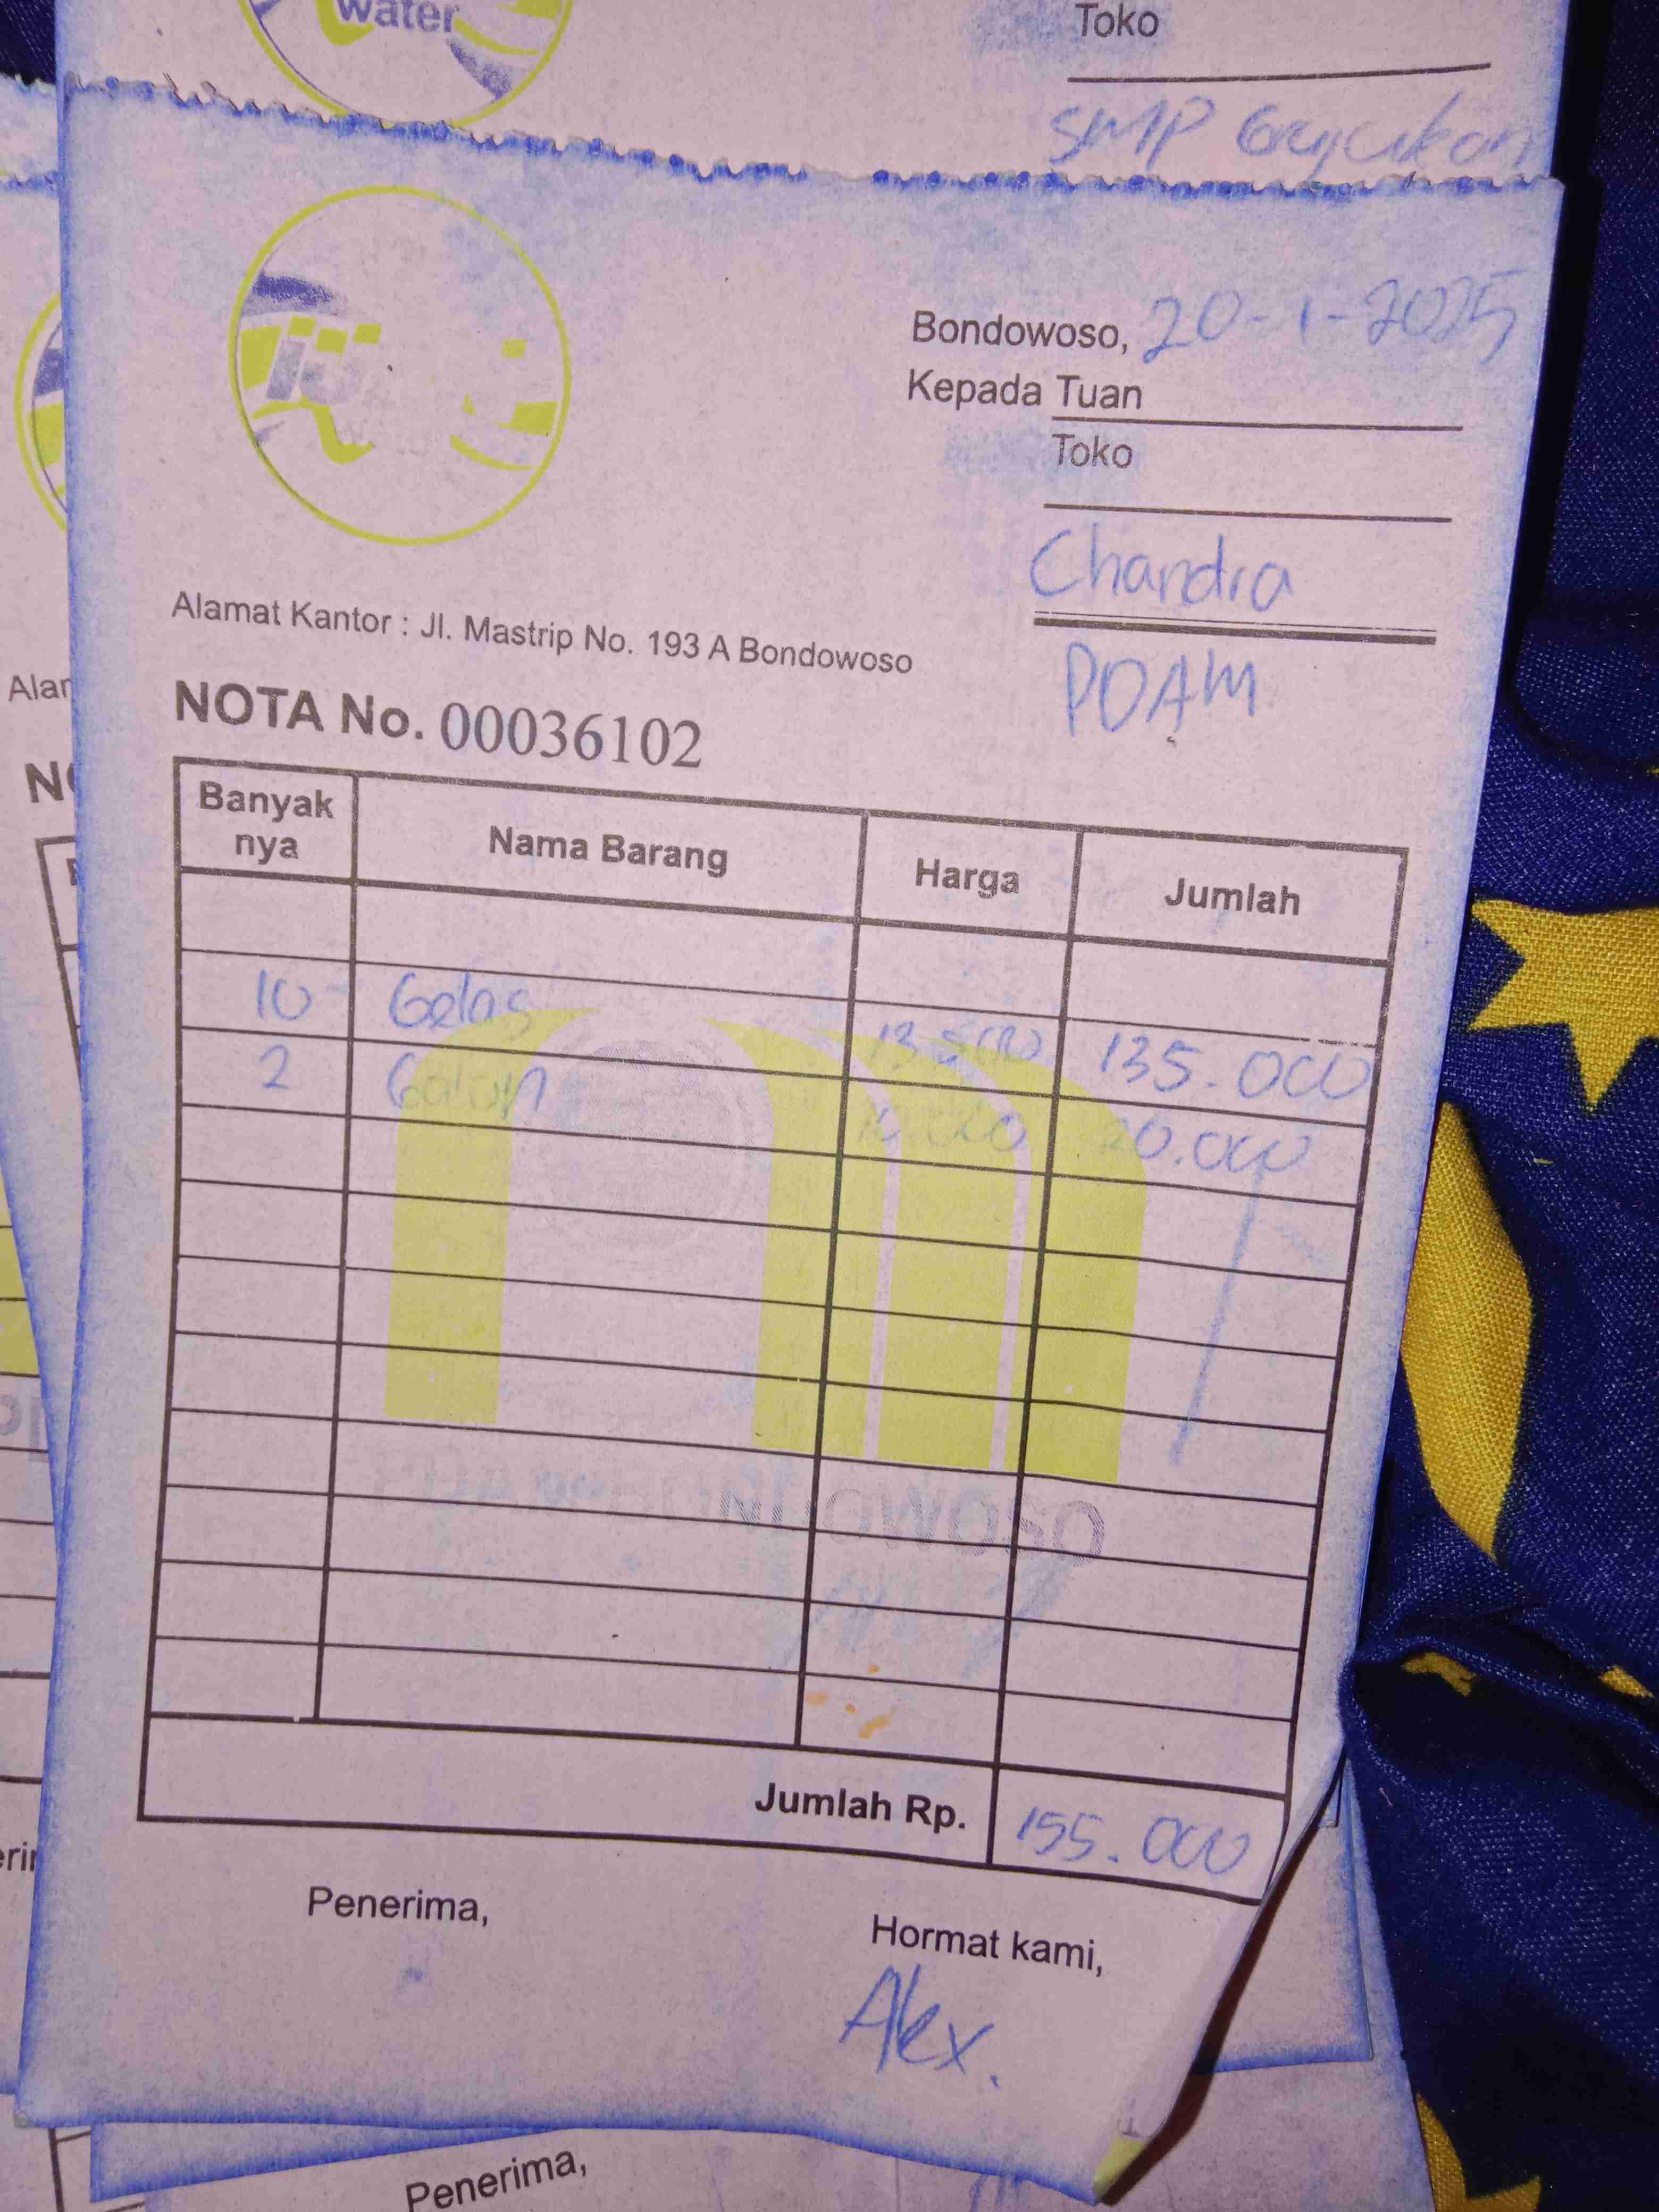 water
Toko
SMP
Bondowoso, 20-1-2025
Kepada Tuan
Toko
Chandra
PDAM
Alamat Kantor : Jl. Mastrip No. 193 A Bondowoso
NOTA No. 00036102
Banyak nya Nama Barang Harga Jumlah
10 Gelas 13.500 135.000
2 Galon 10.000 20.000
Jumlah Rp. 155.000
Penerima, Hormat kami,
Alex.
Penerima,